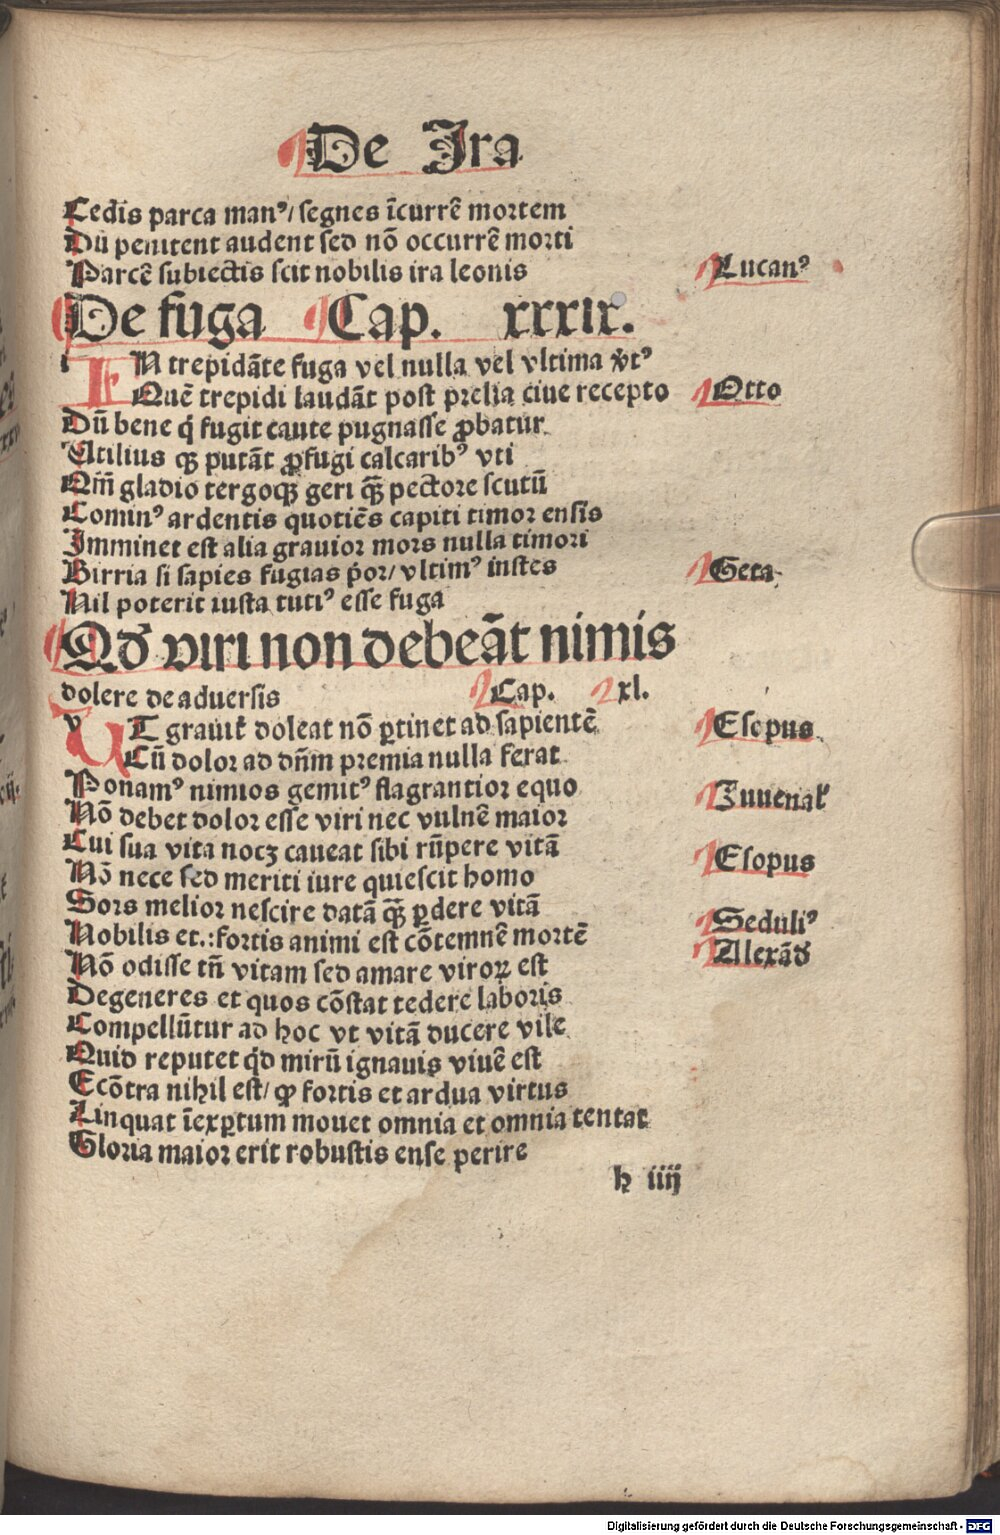 De Ira
Cedis parca manꝰ/ segnes īcurrē mortem
Dū penitent audent sed nō occurrē morti
Parcē subiectis scit nobilis ira leonis
Lucanꝰ
De fuga Cap. xxxix.
i N trepidāte fuga vel nulla vel vltima
Quē trepidi laudāt post prelia ciue recepto
Otto
Dū bene q̇ fugit caute pugnasse ꝓbatur
Utilius qꝫ putāt ꝓfugi calcaribꝰ vti
Qm̄ gladio tergoqꝫ geri qꝫ̄ pectore scutū
Cominꝰ ardentis quotiēs capiti timor ensis
Imminet est alia grauior mors nulla timori
Birria si sapies fugias ṗor/ vltimꝰ instes
Geta
Nil poterit iusta tutiꝰ esse fuga
Qđ viri non debeāt nimis
dolere de aduersis Cap. xl.
v T grauiť doleat nō ꝑtinet ad sapientē
Esopus
Cū dolor ad dn̄m premia nulla ferat
Ponamꝰ nimios gemitꝰ flagrantior equo
Iuuenaľ
Nō debet dolor esse viri nec vulnē maior
Cui sua vita nocꝫ caueat sibi rūpere vitā
Esopus
Nō nece sed meriti iure quiescit homo
Sors melior nescire datā qꝫ̄ ꝑdere vitā
Seduliꝰ
Nobilis et.:fortis animi est cōtemnē mortē
Alexāđ
Nō odisse tn̄ vitam sed amare viroꝝ est
Degeneres et quos cōstat tedere laboris
Compellūtur ad hoc vt vitā ducere vile
Quid reputet qđ mirū ignauis viuē est
Ecōtra nihil est/ ꝙ fortis et ardua virtus
Linquat īexꝑtum mouet omnia et omnia tentat
Gloria maior erit robustis ense perire
h iiij
Digitalisierung gefördert durch die Deutsche Forschungsgemeinschaft - DFG